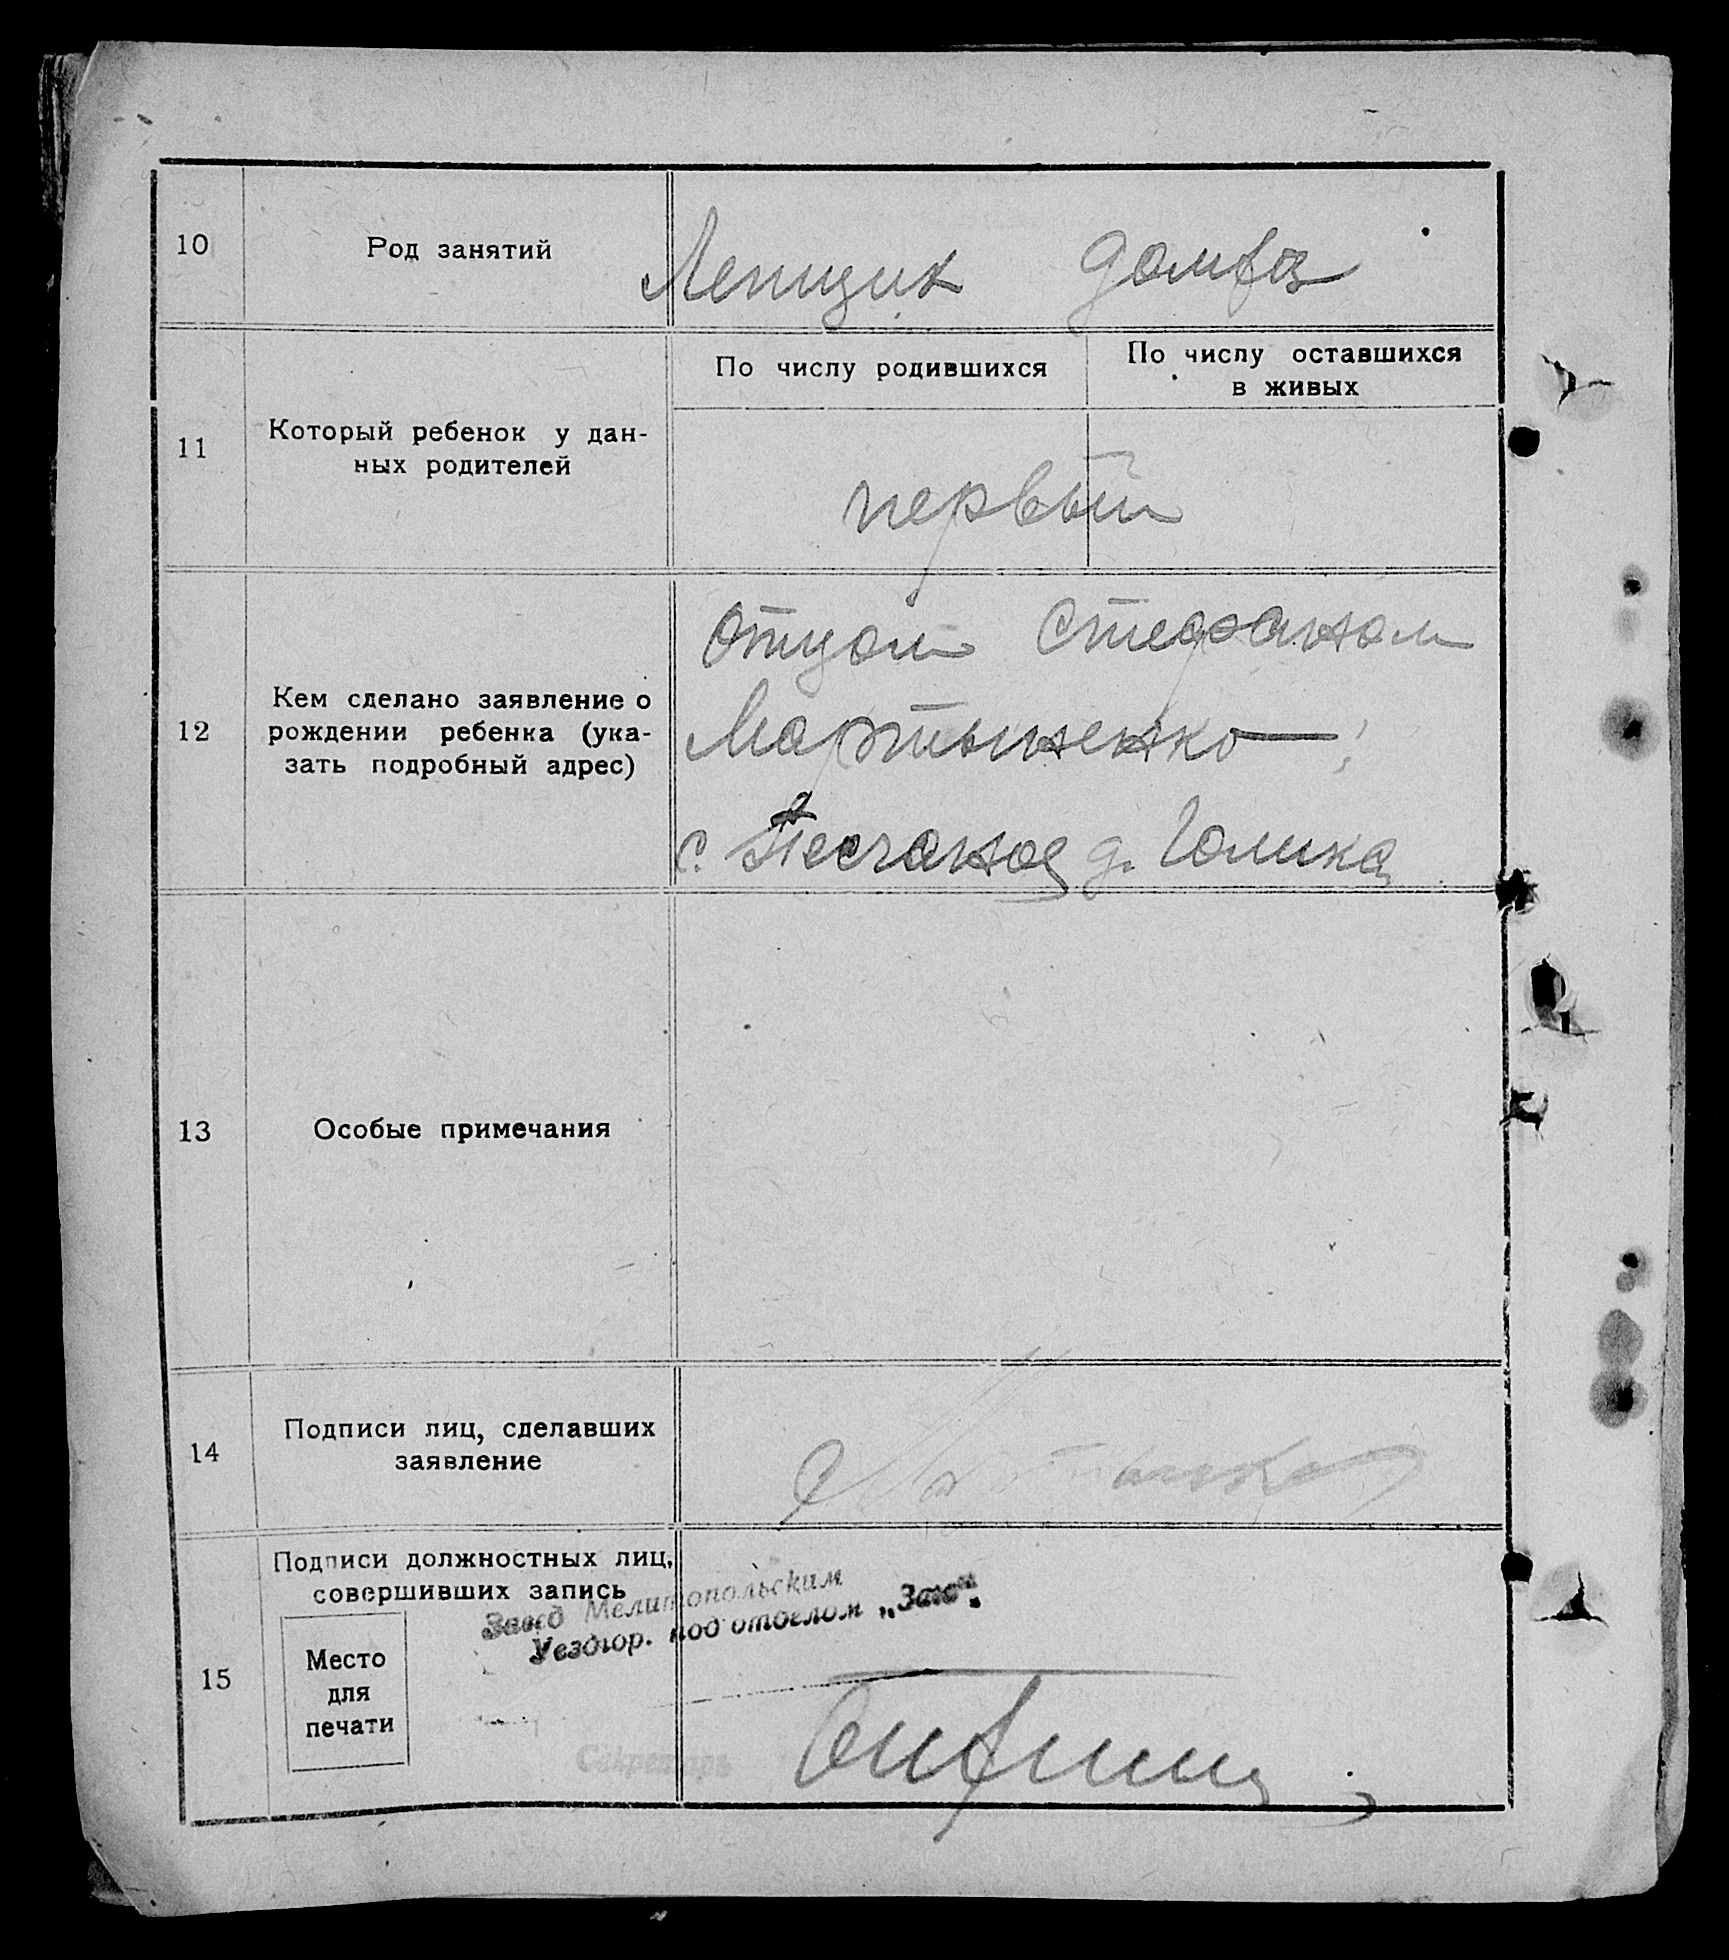 10 Род занятий Лепщик домхоз
По числу родившихся По числу оставшихся
в живых
11 Который ребенок у дан-
ных родителей
первый
12 Кем сделано заявление о
рождении ребенка (ука-
зать подробный адрес)
Отцом Стефаном
Мартыненко
с. Песчаное д. Голика
13 Особые примечания
14 Подписи лиц, сделавших
заявление
15 Подписи должностных лиц,
совершивших запись
Завед Мелитопольским
Уездгор. подотделом „Загс“.
Место
для
печати
Секретарь